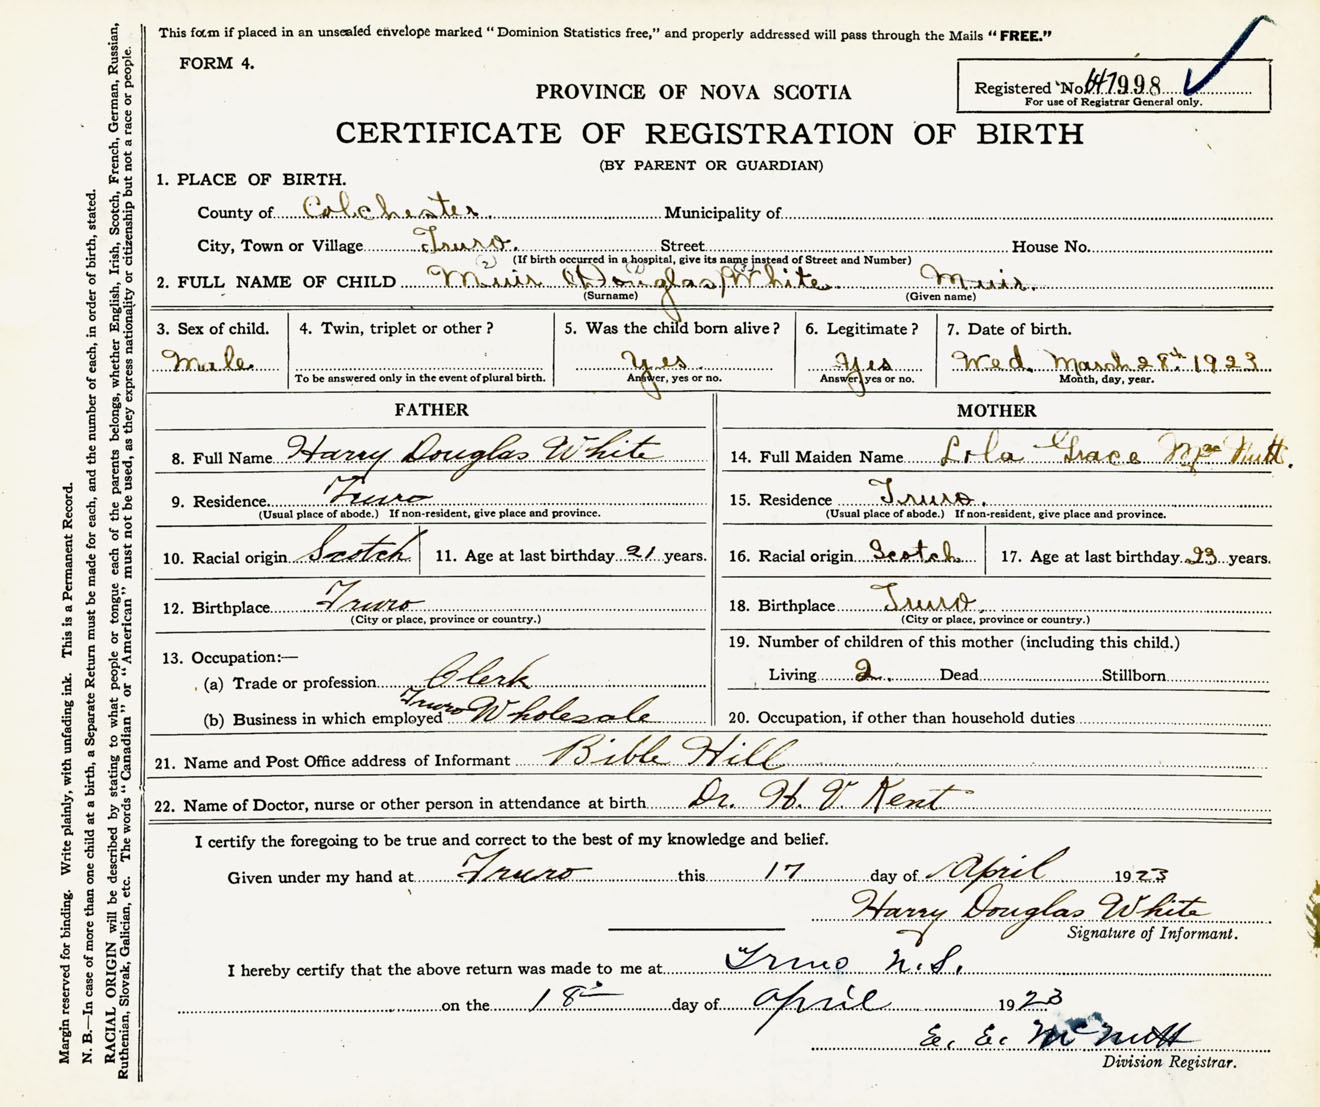 This form if placed in an unsealed envelope marked "Dominion Statistics free," and properly addressed will pass through the Mails "FREE."
FORM 4.
Registered No. 998
For use of Registrar General only.
PROVINCE OF NOVA SCOTIA
CERTIFICATE OF REGISTRATION OF BIRTH
(BY PARENT OR GUARDIAN)
1. PLACE OF BIRTH.
County of Colchester Municipality of
City, Town or Village Truro. Street House No.
(If birth occurred in a hospital, give its name instead of Street and Number)
2. FULL NAME OF CHILD Muir Douglas White Muir.
(Surname) (Given name)
3. Sex of child. 4. Twin, triplet or other? 5. Was the child born alive? 6. Legitimate? 7. Date of birth.
Male Yes Yes Wed. March 28th. 1923
To be answered only in the event of plural birth. Answer, yes or no. Answer, yes or no. Month, day, year.
FATHER
8. Full Name Harry Douglas White
9. Residence Truro
(Usual place of abode.) If non-resident, give place and province.
10. Racial origin Scotch 11. Age at last birthday 21 years.
12. Birthplace Truro
(City or place, province or country.)
13. Occupation:—
(a) Trade or profession Clerk
(b) Business in which employed Truro Wholesale
MOTHER
14. Full Maiden Name Lola Grace MacNutt.
15. Residence Truro.
(Usual place of abode.) If non-resident, give place and province.
16. Racial origin Scotch 17. Age at last birthday 23 years.
18. Birthplace Truro.
(City or place, province or country.)
19. Number of children of this mother (including this child.)
Living 2. Dead Stillborn
20. Occupation, if other than household duties
21. Name and Post Office address of Informant Bible Hill
22. Name of Doctor, nurse or other person in attendance at birth Dr. H. V. Kent
I certify the foregoing to be true and correct to the best of my knowledge and belief.
Given under my hand at Truro this 17 day of April 1923
Harry Douglas White
Signature of Informant.
I hereby certify that the above return was made to me at Truro N.S.
on the 18th day of April 1923
E. E. McNutt
Division Registrar.
Margin reserved for binding. Write plainly, with unfading ink. This is a Permanent Record.
N. B.—In case of more than one child at a birth, a Separate Return must be made for each, and the number of each, in order of birth, stated.
RACIAL ORIGIN will be described by stating to what people or tongue each of the parents belongs, whether English, Irish, Scotch, French, German, Russian,
Ruthenian, Slovak, Galician, etc. The words "Canadian" or "American" must not be used, as they express nationality or citizenship but not a race or people.